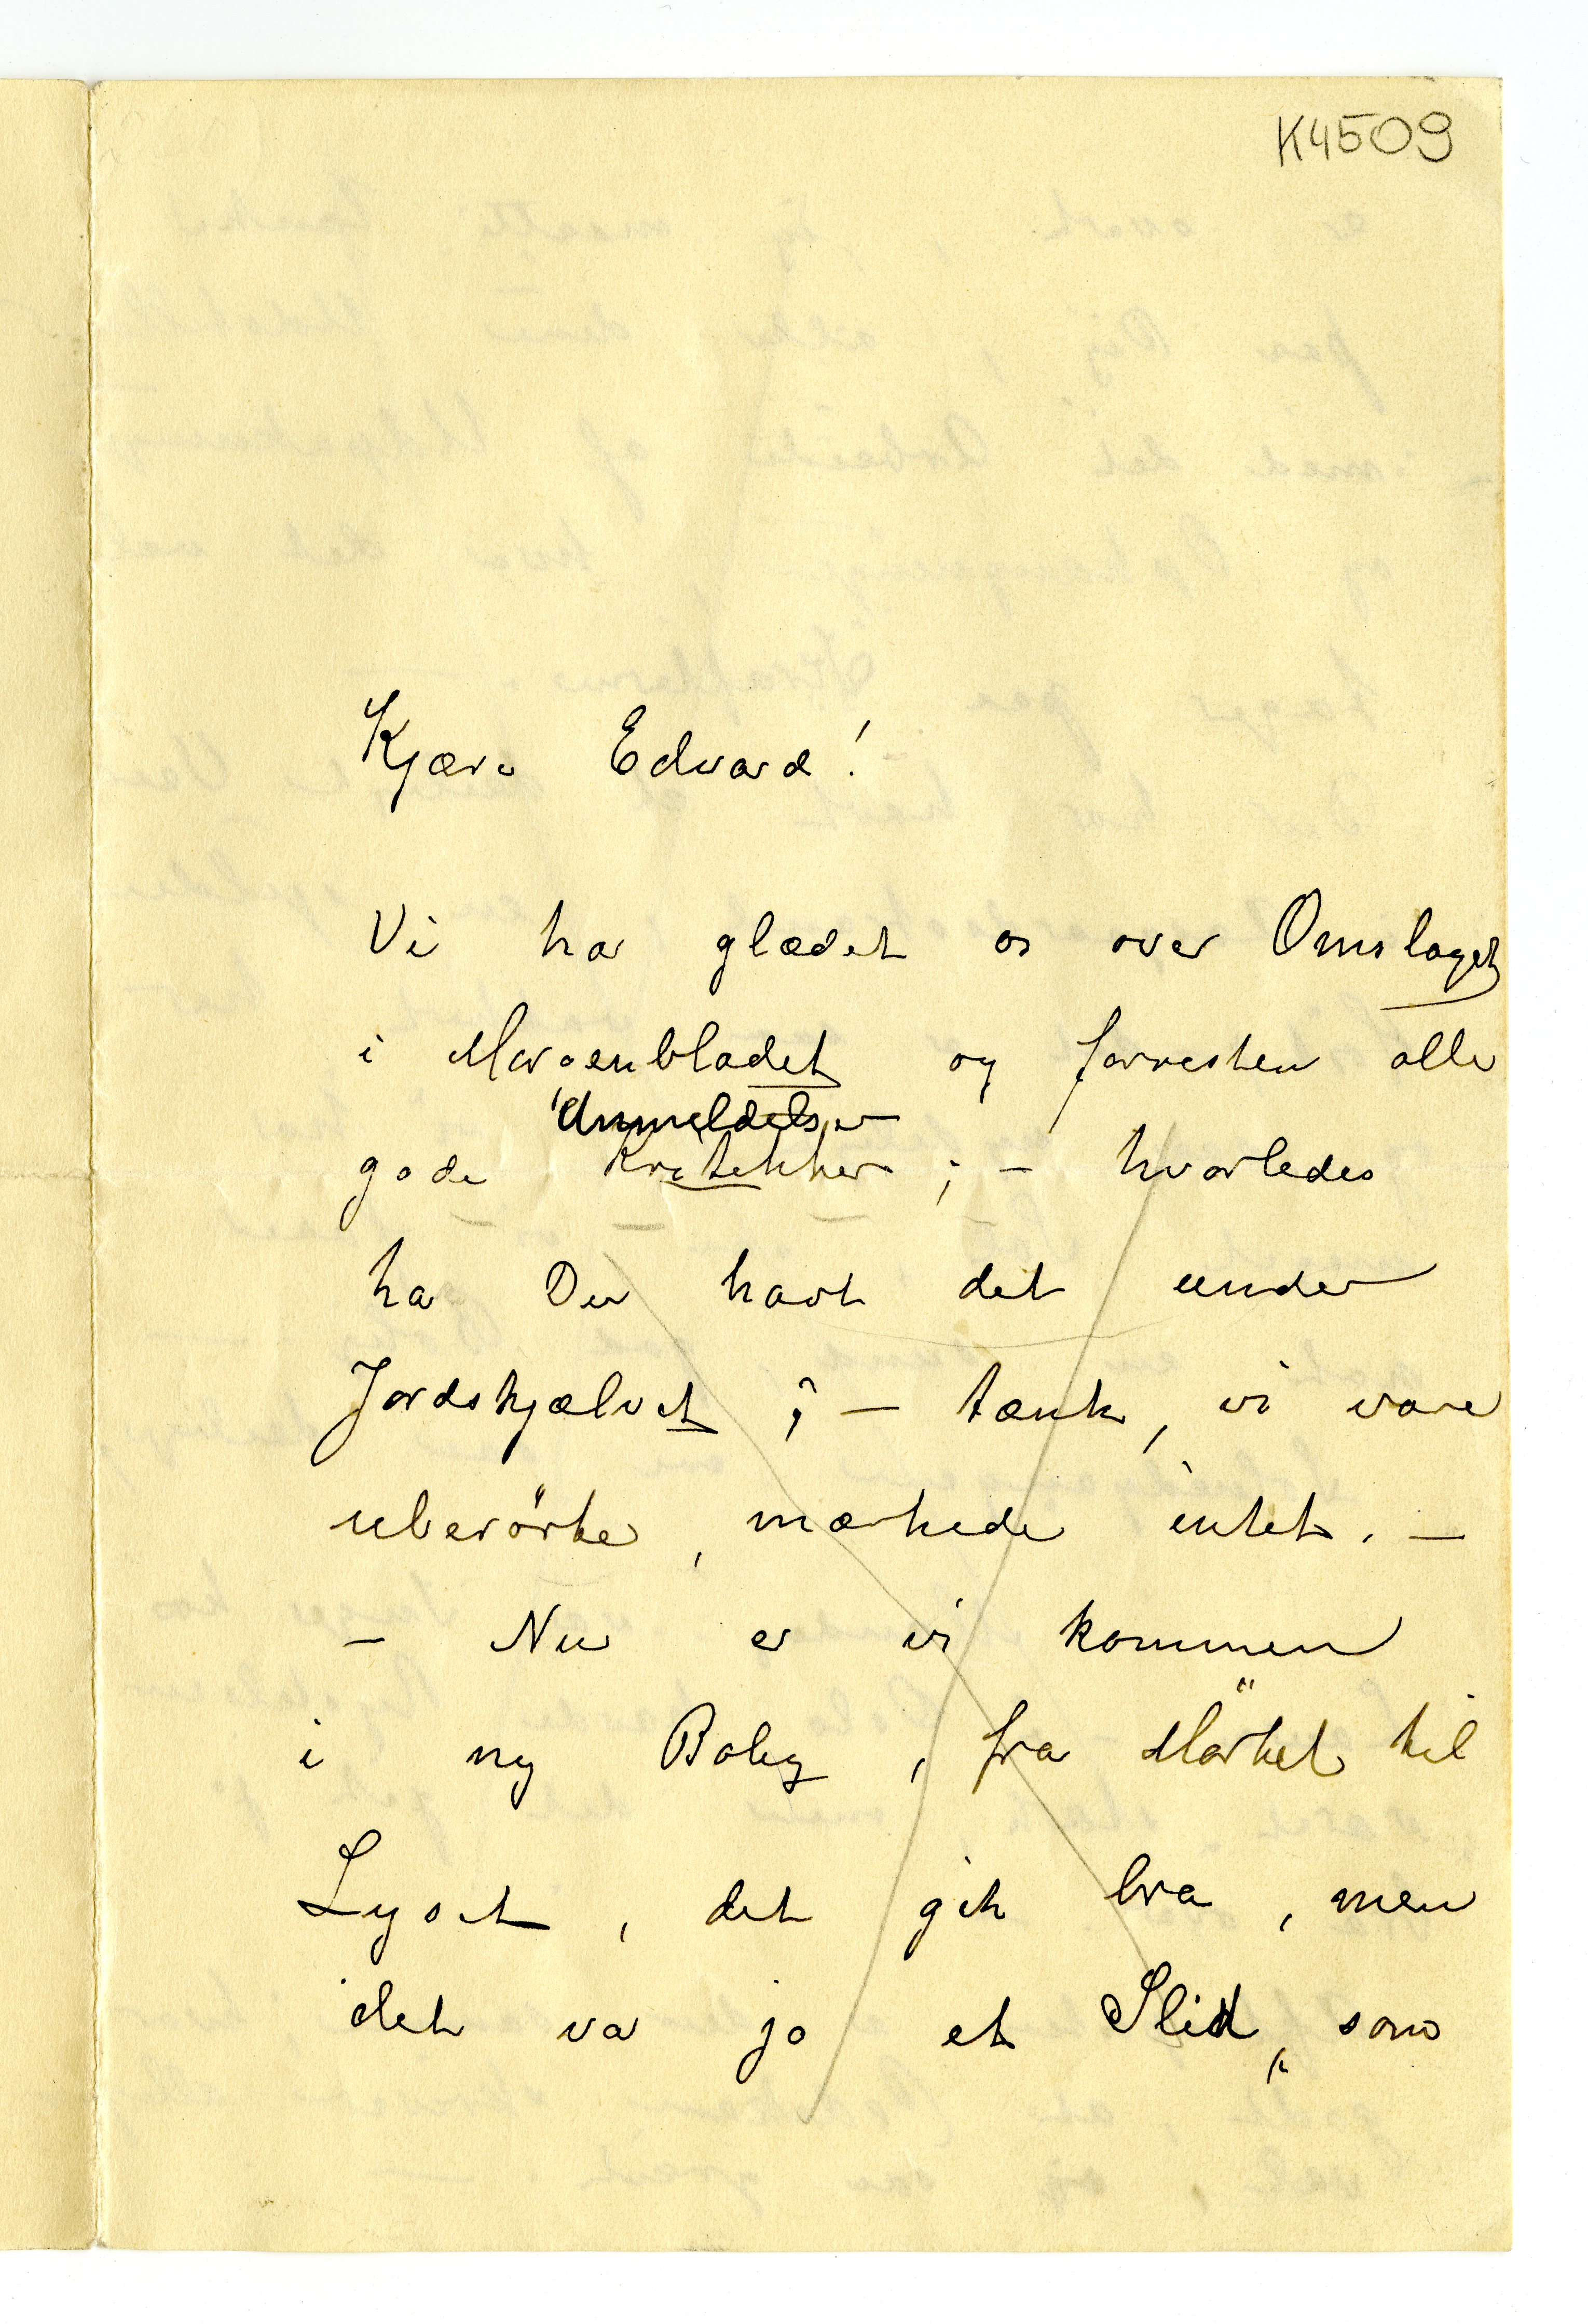 K4509
Kjære Edvard!
Vi har glædet os over Omslaget
i Morgenbladet og forresten alle
Anmeldelser
gode Kritikker ; – hvorledes
har Du havt det under
Jordskjælvet ? – tænk, vi vare
uberörte, mærkede intet. –
– Nu er vi kommen
i ny Bolig, fra Mörket til
Lyset, det gik bra, men
det var jo et Slid, som